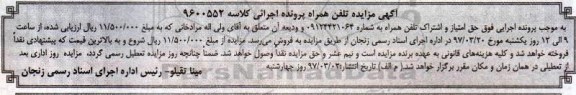 آگهی مزایده تلفن همراه پرونده اجرائی کلاسه ۹۶۰۰۵۵۲
به موجب پرونده اجرایی فوق حق امتیاز و اشتراک تلفن همراه به شماره ۰۹۱۲۲۴۲۱۰۶۴ و ودیعه آن متعلق به آقای ولی اله مرادخانی که به مبلغ ۱۱/۵۰۰/۰۰۰ ریال ارزیابی شده، از ساعت
۹ الی ۱۲ روز یکشنبه مورخ ۹۷/۰۳/۲۰ در اداره اجرای اسناد رسمی زنجان از طریق مزایده به فروش می‌رسد. مزایده از مبلغ ۱۱/۵۰۰/۰۰۰ ریال شروع و به بالاترین قیمت که پیشنهادی نقداً
فروخته خواهد شد و کلیه هزینه‌های قانونی به عهده برنده مزایده است و نیم عشر و حق مزایده نقداً وصول خواهد شد. ضمناً چنانچه روز مزایده تعطیل رسمی گردد، مزایده روز اداری بعد
از تعطیلی در همان زمان و مکان مقرر برگزار خواهد شد. (م الف) تاریخ انتشار: ۹۷/۰۳/۰۲ روز چهارشنبه
مینا نقیلو- رئیس اداره اجرای اسناد رسمی زنجان